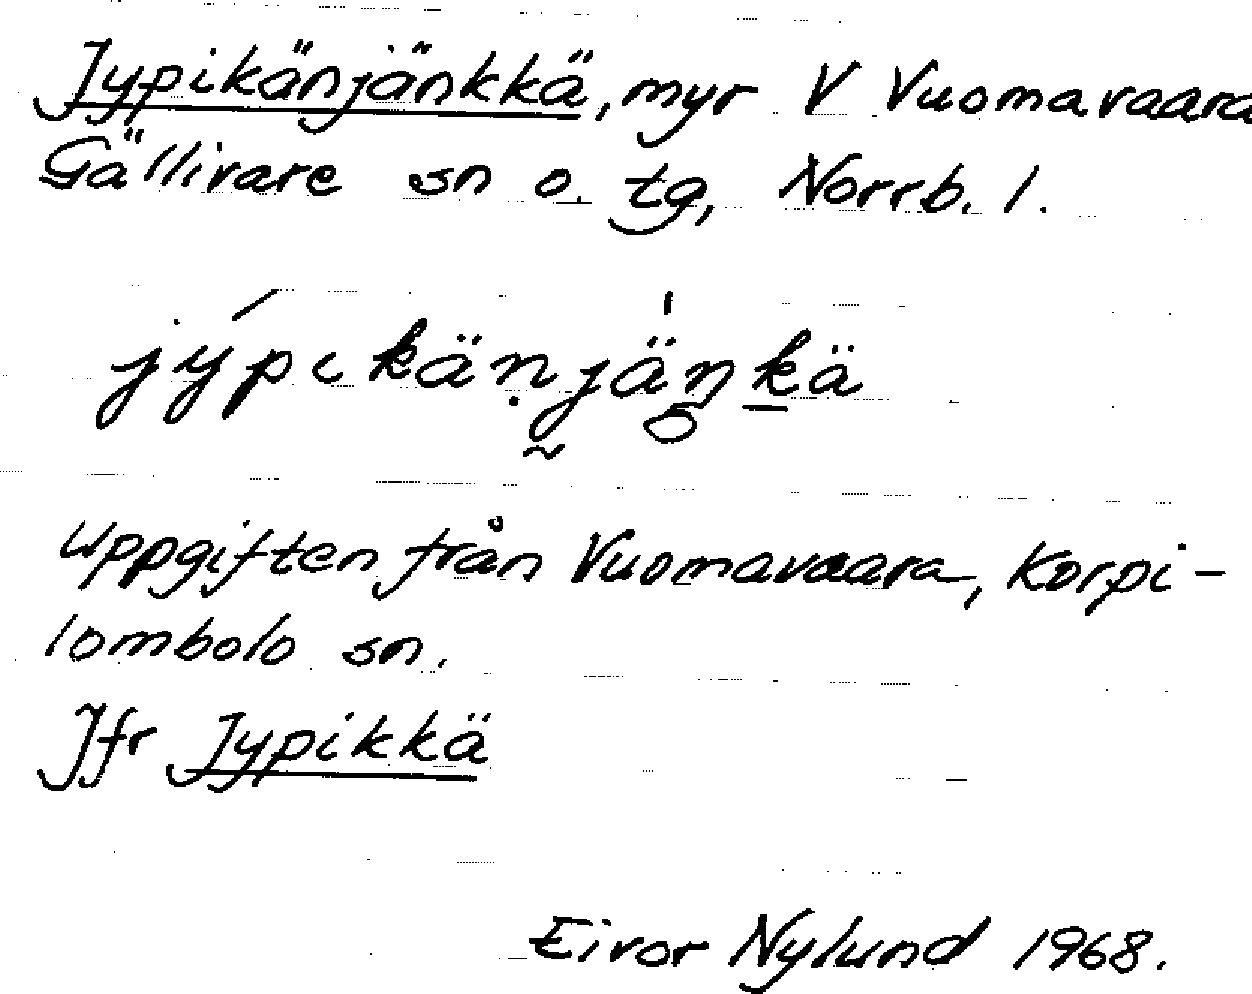 Jypikänjänkkä, myr V Vuomavaara
Gällivare sn o. tg, Norrb. l.
jýpikäṇjäŋkä
Uppgiften från Vuomavaara, Korpi-
lombolo sn.
Jfr Jypikkä
Eivor Nylund 1968.